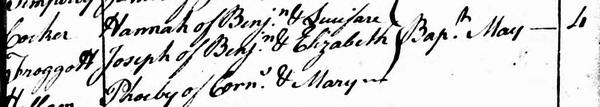 Cocker Hannah of Benj.n & Lucifare
Froggott Joseph of Benj.n & Elizabeth } Bap.th May — 4
Phoeby of Corn.s & Mary